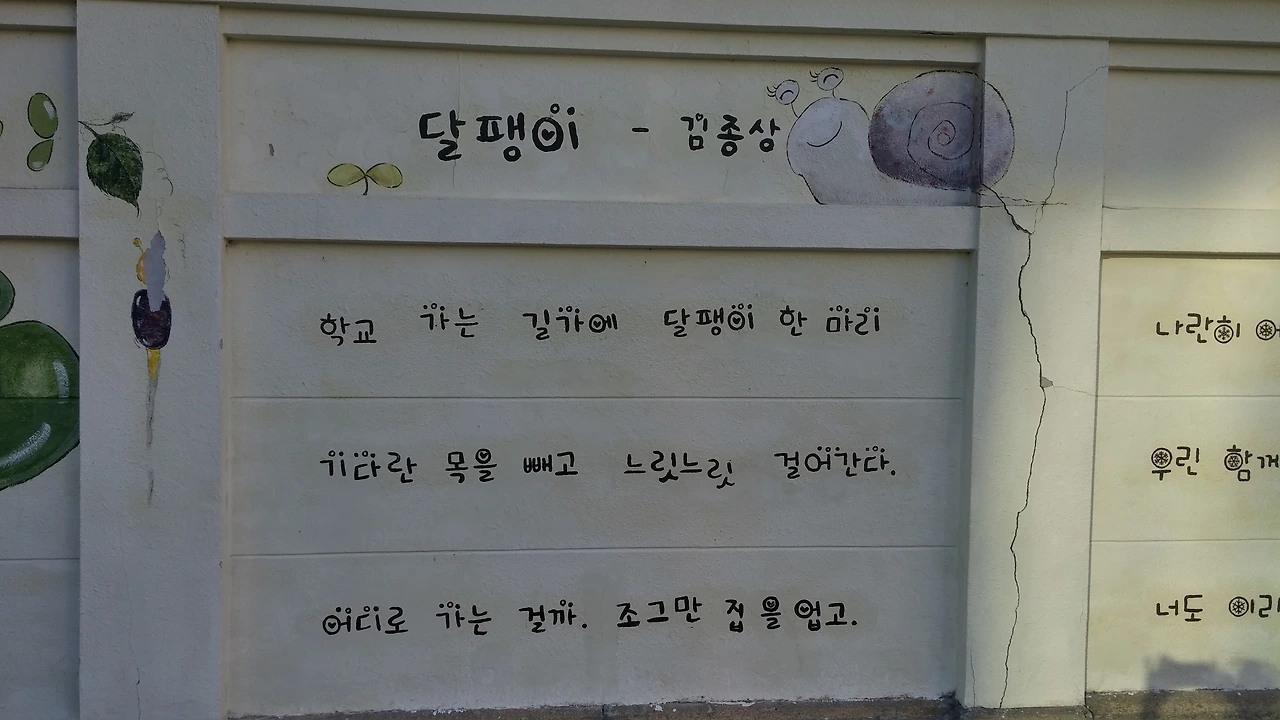 달팽이 - 김종상
학교 가는 길가에 달팽이 한 마리
기다란 목을 빼고 느릿느릿 걸어간다.
어디로 가는 걸까. 조그만 집을 업고.
나란히
우린 함께
너도